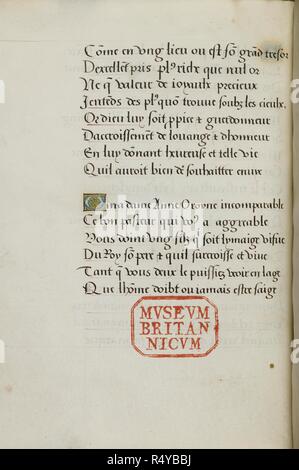 Co͂me en vng lieu ou est so͂ gra͂d tresor
Dexcelle͂t pris plꝰ riche que nul or
Ne q̃ valeur de ioyaulx precieux
Jente͂ds des plꝰ quo͂ trouue soubz les cieulx.
Or dieu luy soit ꝓpice et guerdonneur
Dacroissement de louange et dhonneur
En luy do͂nant heureuse et telle vie
Quil auroit bien de souhaitter enuie
Ma dame Anne Royne incomparable
Ce bon pasteur qui voꝰ a aggreable
Vous doint vng filz q̃ soit lymaige
Du Roy so͂ pere et quil succroisse et viue
Tant q̃ vous deux le puissiez veoir en
Que lho͂me doibt ou iamais estre saige
MVSEVM
BRITAN
NICVM
alamy
R4YBBJ